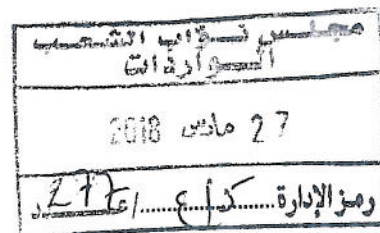 مجلس نواب الشعب
الواردات
27 مارس 2018
رمز الإدارة